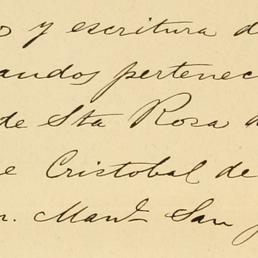 y escritura d
andos pertenec
de Sta Rosa d
e Cristobal de
n. Manl. San J